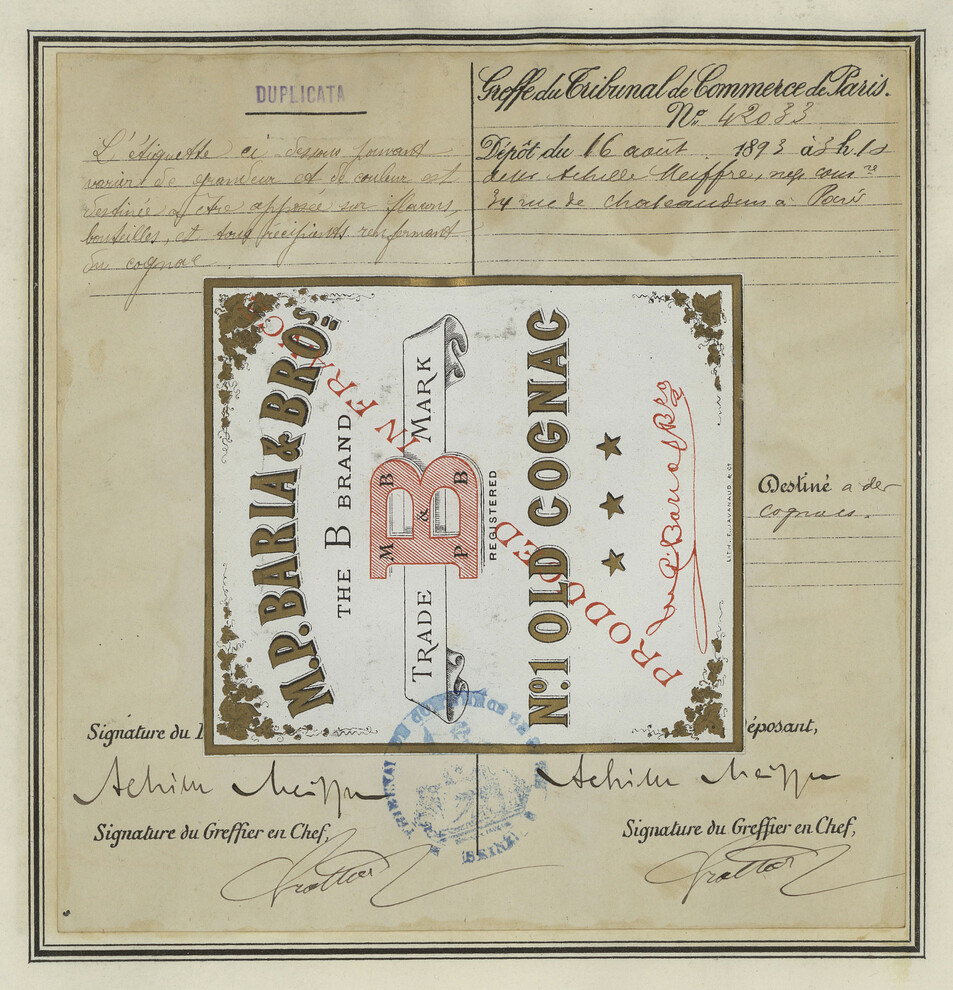 DUPLICATA
L'étiquette ci dessous pouvant
varier de grandeur et de couleur est
destinée a être apposée sur flacons,
bouteilles, et tous récipients renfermant
du cognac
Greffe du Tribunal de Commerce de Paris.
No. 42033
Dépôt du 16 aout 1893 à 3 h. 1/2
Achille Meiffre, neg
34 rue de chateaudun à Paris
M.P. BARIA & BROS
THE B BRAND
TRADE MARK
B
M B
&
P B
REGISTERED
No. 1 OLD COGNAC
PRODUCED IN FRANCE
M P Baria & Bro
LITH. F. JAVANAUD & Co
Destiné a des
cognacs.
Signature du
éposant,
Achille Meiffre
Achille Meiffre
Signature du Greffier en Chef,
Signature du Greffier en Chef,
TRIBUNAL DE COMMERCE DE
SEINE